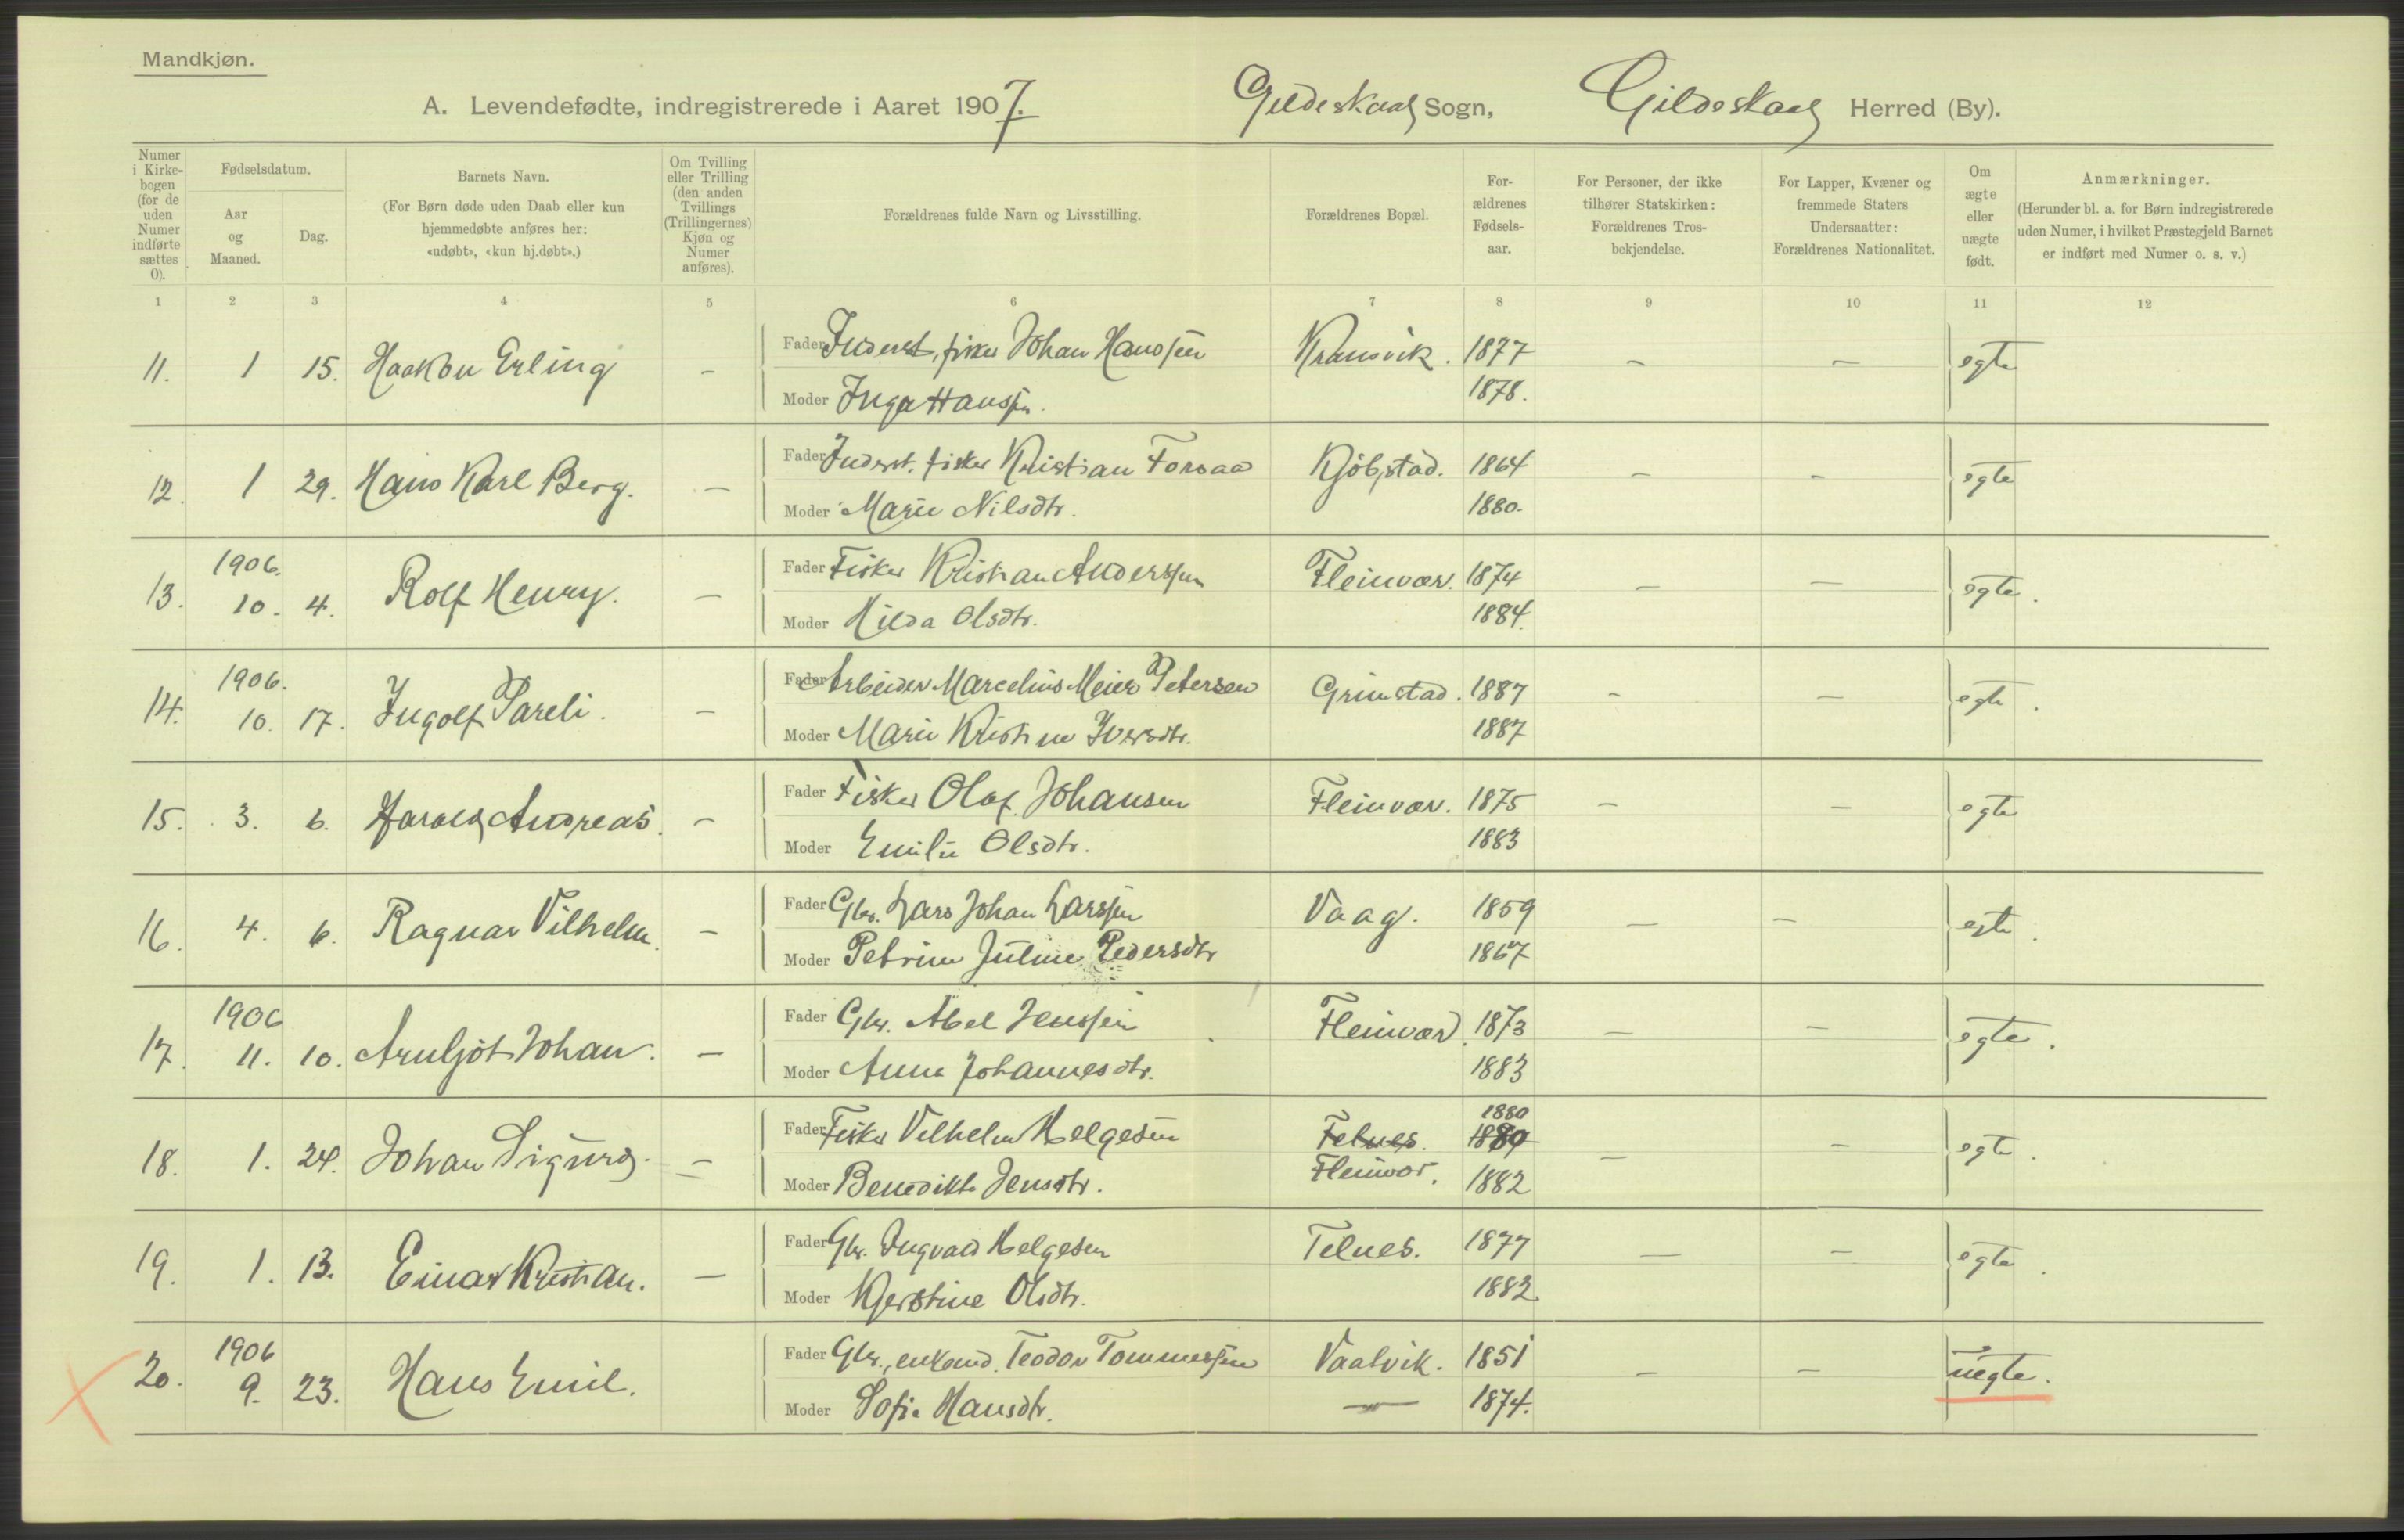 Mandkjøn.
A. Levendefødte, indregistrerede i Aaret 1907. Gildeskaal Sogn, Gildeskaal Herred (By).
Numer i Kirkebogen (for de uden Numer indførte sættes 0).
Fødselsdatum.
Aar og Maaned.
Dag.
Barnets Navn.
(For Børn døde uden Daab eller kun hjemmedøbte anføres her: «udøbt», «kun hj.døbt».)
Om Tvilling eller Trilling (den anden Tvillings (Trillingernes) Kjøn og Numer anføres).
Forældrenes fulde Navn og Livsstilling.
Forældrenes Bopæl.
Forældrenes Fødselsaar.
For Personer, der ikke tilhører Statskirken: Forældrenes Trosbekjendelse.
For Lapper, Kvæner og fremmede Staters Undersaatter: Forældrenes Nationalitet.
Om ægte eller uægte født.
Anmærkninger.
(Herunder bl. a. for Børn indregistrerede uden Numer, i hvilket Præstegjeld Barnet er indført med Numer o. s. v.)
1 2 3 4 5 6 7 8 9 10 11 12
11. 1 15. Haakon Erling - Fader Inderst, fisker Johan Hanssen Kransvik. 1877 - - egte
Moder Inga Hanssen. 1878.
12. 1 29. Hans Karl Berg. - Fader Inderst. fisker Kristian Forsaa Kjøbstad. 1864 - - egte
Moder Marie Nilsdtr. 1880.
1906.
13. 10. 4. Rolf Henry. - Fader Fisker Kristian Anderssen Fleinvær. 1874 - - egte.
Moder Hilda Olsdtr. 1884.
1906.
14. 10. 17. Ingolf Pareli. - Fader Arbeider Marcelius Meier Petersen Grimstad. 1887 - - egte.
Moder Marie Kristine Iversdtr. 1887
15. 3. 6. Harald Andreas. - Fader Fisker Olaf Johansen Fleinvær. 1875 - - egte
Moder Emilie Olsdtr. 1883
16. 4. 6. Ragnar Vilhelm. - Fader Gbr. Lars Johan Larssen Vaag. 1859 - - egte.
Moder Petrine Juline Pedersdtr 1867
1906
17. 11. 10. Arnljot Johan. - Fader Gbr. Abel Jenssen Fleinvær. 1873 - - egte.
Moder Anna Johannesdtr. 1883
18. 1. 24. Johan Sigurd. - Fader Fisker Vilhelm Helgesen Felnes. 1880 1880 - - egte.
Moder Benedikte Jensdtr. Fleinvær. 1882
19. 1. 13. Einar Kristian. - Fader Gbr. Ingvald Helgesen Telnes. 1877 - - egte.
Moder Kjerstine Olsdtr. 1882.
1906
20. 9. 23. Hans Emil. Fader Gbr., enkemd. Teodor Tommessen Vaatvik. 1851 - - uegte.
Moder Sofie Hansdtr. - 1874.